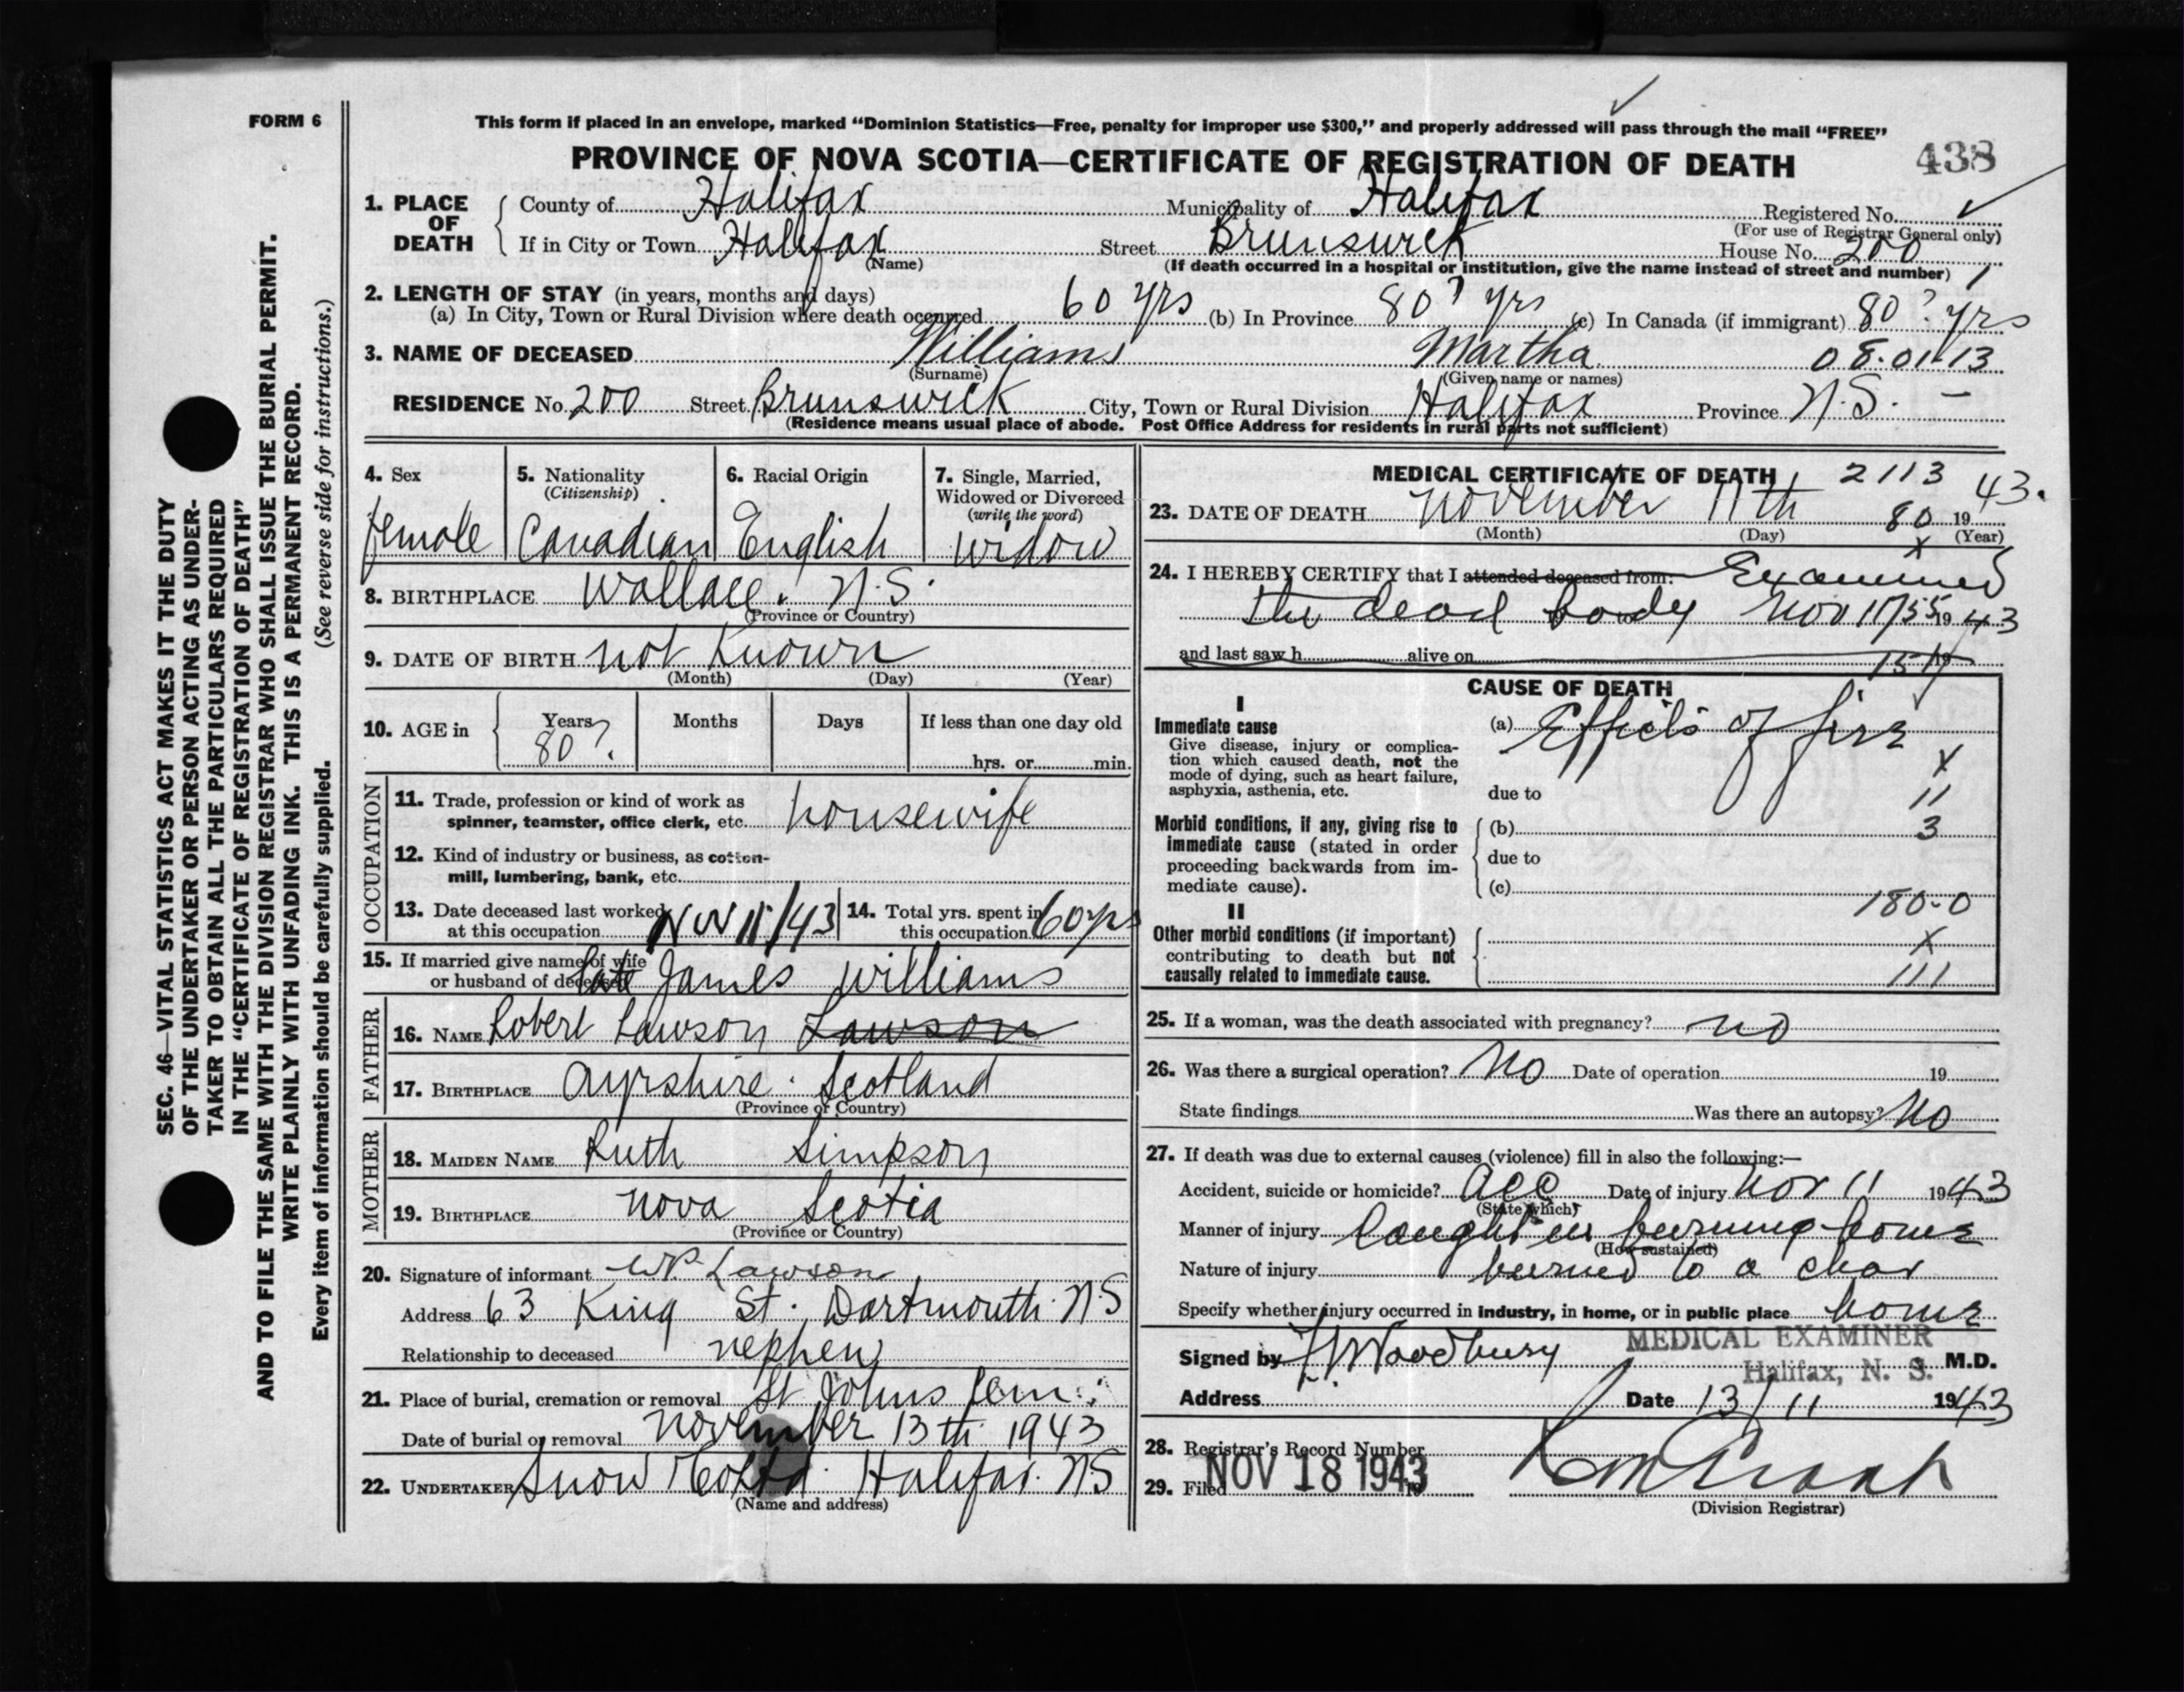 FORM 6
This form if placed in an envelope, marked “Dominion Statistics—Free, penalty for improper use $300,” and properly addressed will pass through the mail “FREE”
PROVINCE OF NOVA SCOTIA—CERTIFICATE OF REGISTRATION OF DEATH 438
1. PLACE OF DEATH County of Halifax Municipality of Halifax Registered No.
(For use of Registrar General only)
If in City or Town Halifax Street Brunswick House No. 200
(Name) (If death occurred in a hospital or institution, give the name instead of street and number) 1
2. LENGTH OF STAY (in years, months and days)
(a) In City, Town or Rural Division where death occurred 60 yrs (b) In Province 80? yrs (c) In Canada (if immigrant) 80? yrs
3. NAME OF DECEASED Williams Martha 08-01-13
(Surname) (Given name or names)
RESIDENCE No. 200 Street Brunswick City, Town or Rural Division Halifax Province N.S. —
(Residence means usual place of abode. Post Office Address for residents in rural parts not sufficient)
4. Sex 5. Nationality 6. Racial Origin 7. Single, Married,
(Citizenship) Widowed or Divorced
(write the word)
female Canadian English widow
8. BIRTHPLACE Wallace. N.S.
(Province or Country)
9. DATE OF BIRTH not Known
(Month) (Day) (Year)
10. AGE in Years Months Days If less than one day old
80? hrs. or min.
OCCUPATION
11. Trade, profession or kind of work as
spinner, teamster, office clerk, etc. housewife
12. Kind of industry or business, as cotton-
mill, lumbering, bank, etc.
13. Date deceased last worked
at this occupation Nov 11/43
14. Total yrs. spent in
this occupation 60 yrs
15. If married give name of wife
or husband of deceased late James Williams
FATHER
16. NAME Robert Lawson Lawson
17. BIRTHPLACE Ayrshire. Scotland
(Province or Country)
MOTHER
18. MAIDEN NAME Ruth Simpson
19. BIRTHPLACE Nova Scotia
(Province or Country)
20. Signature of informant W.P. Lawson
Address 63 King St. Dartmouth. N.S
Relationship to deceased nephew
21. Place of burial, cremation or removal St Johns Cem.
Date of burial or removal November 13th 1943
22. UNDERTAKER Snow Co Ltd. Halifax. NS
(Name and address)
MEDICAL CERTIFICATE OF DEATH 2113
23. DATE OF DEATH November 11th 80 19 43.
(Month) (Day) (Year)
x
24. I HEREBY CERTIFY that I attended deceased from: Examined
the dead body to Nov 11/55 19 43
and last saw h alive on 19
151
CAUSE OF DEATH
I
Immediate cause
Give disease, injury or complica-
tion which caused death, not the
mode of dying, such as heart failure,
asphyxia, asthenia, etc.
(a) Effects of fire
x
due to 11
Morbid conditions, if any, giving rise to
immediate cause (stated in order
proceeding backwards from im-
mediate cause).
(b) 3
due to
(c) 180-0
II
Other morbid conditions (if important)
contributing to death but not
causally related to immediate cause.
x
111
25. If a woman, was the death associated with pregnancy? no
26. Was there a surgical operation? No Date of operation 19
State findings Was there an autopsy? No
27. If death was due to external causes (violence) fill in also the following:—
Accident, suicide or homicide? Acc Date of injury Nov 11 1943
(State which)
Manner of injury Caught in burning home
(How sustained)
Nature of injury burned to a char
Specify whether injury occurred in industry, in home, or in public place home
MEDICAL EXAMINER
Signed by Woodbury Halifax, N. S. M.D.
Address Date 13/11 1943
28. Registrar's Record Number
29. Filed NOV 18 1943
(Division Registrar)
SEC. 46—VITAL STATISTICS ACT MAKES IT THE DUTY
OF THE UNDERTAKER OR PERSON ACTING AS UNDER-
TAKER TO OBTAIN ALL THE PARTICULARS REQUIRED
IN THE “CERTIFICATE OF REGISTRATION OF DEATH”
AND TO FILE THE SAME WITH THE DIVISION REGISTRAR WHO SHALL ISSUE THE BURIAL PERMIT.
WRITE PLAINLY WITH UNFADING INK. THIS IS A PERMANENT RECORD.
Every item of information should be carefully supplied. (See reverse side for instructions.)